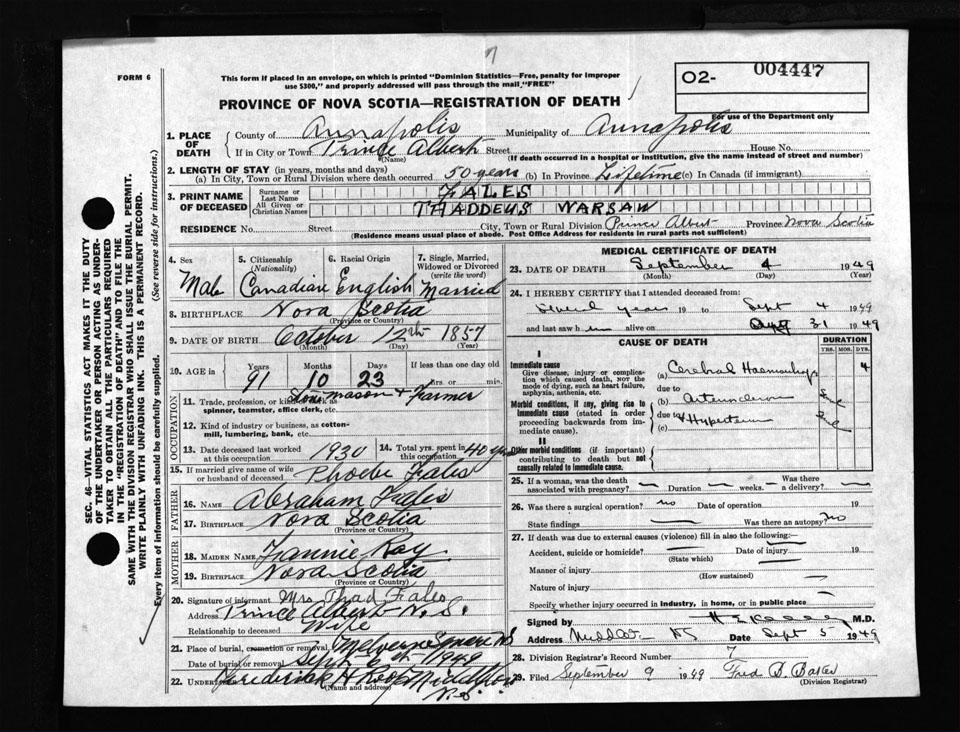 FORM 6
This form if placed in an envelope, on which is printed "Dominion Statistics—Free, penalty for improper
use $300," and properly addressed will pass through the mail "FREE"
02- 004447
For use of the Department only
PROVINCE OF NOVA SCOTIA—REGISTRATION OF DEATH
SEC. 46—VITAL STATISTICS ACT MAKES IT THE DUTY
OF THE UNDERTAKER OR PERSON ACTING AS UNDER-
TAKER TO OBTAIN ALL THE PARTICULARS REQUIRED
IN THE "REGISTRATION OF DEATH" AND TO FILE THE
SAME WITH THE DIVISION REGISTRAR WHO SHALL ISSUE THE BURIAL PERMIT.
WRITE PLAINLY WITH UNFADING INK. THIS IS A PERMANENT RECORD.
Every item of information should be carefully supplied. (See reverse side for instructions.)
1. PLACE OF DEATH County of Annapolis Municipality of Annapolis
If in City or Town Prince Albert Street House No.
(Name) (If death occurred in a hospital or institution, give the name instead of street and number)
2. LENGTH OF STAY (in years, months and days)
(a) In City, Town or Rural Division where death occurred 50 years (b) In Province Lifetime (c) In Canada (if immigrant)
3. PRINT NAME OF DECEASED Surname or Last Name FALES
All Given or Christian Names THADDEUS WARSAW
RESIDENCE No. Street City, Town or Rural Division Prince Albert Province Nova Scotia
(Residence means usual place of abode. Post Office Address for residents in rural parts not sufficient)
4. Sex 5. Citizenship (Nationality) 6. Racial Origin 7. Single, Married, Widowed or Divorced (write the word)
Male Canadian English Married
8. BIRTHPLACE Nova Scotia
(Province or Country)
9. DATE OF BIRTH October 12th 1857
(Month) (Day) (Year)
10. AGE in Years Months Days If less than one day old
91 10 23 hrs or min.
OCCUPATION
11. Trade, profession, or kind of work as spinner, teamster, office clerk, etc. Stone mason + Farmer
12. Kind of industry or business, as cotton-
mill, lumbering, bank, etc.
13. Date deceased last worked at this occupation 1930 14. Total yrs. spent in this occupation 40 yrs
15. If married give name of wife or husband of deceased Phoebe Fales
FATHER
16. NAME Abraham Fales
17. BIRTHPLACE Nova Scotia
(Province or Country)
MOTHER
18. MAIDEN NAME Fannie Ray
19. BIRTHPLACE Nova Scotia
(Province or Country)
20. Signature of informant Mrs Thad Fales
Address Prince Albert N.S.
Relationship to deceased Wife
21. Place of burial, cremation or removal Melverne Square NS
Date of burial or removal Sept 6th 1949
22. Undertaker Frederick H Roop Middleton
(Name and address) N.S.
MEDICAL CERTIFICATE OF DEATH
23. DATE OF DEATH September 4 1949
(Month) (Day) (Year)
24. I HEREBY CERTIFY that I attended deceased from:
Several years 19 to Sept 4 1949
and last saw him alive on 31 1949
CAUSE OF DEATH DURATION
YRS. MOS. DYS.
I
Immediate cause
Give disease, injury or complica-
tion which caused death, NOT the
mode of dying, such as heart failure,
asphyxia, asthenia, etc.
(a) Cerebral Haemorrhage 4
due to
Morbid conditions, if any, giving rise to
immediate cause (stated in order
proceeding backwards from im-
mediate cause).
(b)
due to
(c)
II
Other morbid conditions (if important)
contributing to death but not
causally related to immediate cause.
25. If a woman, was the death Was there
associated with pregnancy? — Duration — weeks. a delivery? —
26. Was there a surgical operation? no Date of operation 19
State findings — Was there an autopsy? no
27. If death was due to external causes (violence) fill in also the following:—
Accident, suicide or homicide? — Date of injury — 19
(State which)
Manner of injury
(How sustained)
Nature of injury —
Specify whether injury occurred in industry, in home, or in public place —
Signed by M.D.
Address NS Date Sept 5 1949
28. Division Registrar's Record Number 7
29. Filed September 9 1949 Fred B. Baxter
(Division Registrar)